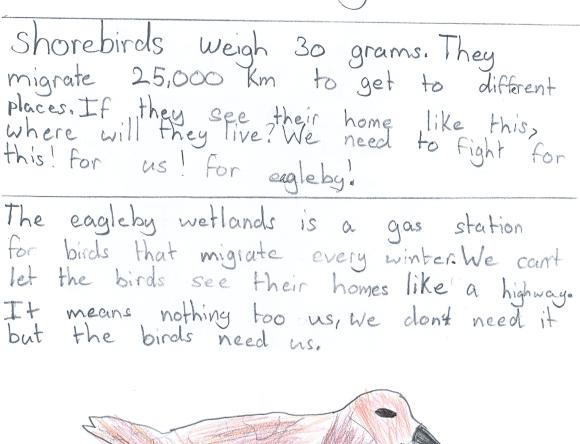 Shorebirds weigh 30 grams. They
migrate 25,000 km to get to different
places. If they see their home like this,
where will they live? We need to fight for
this! for us! for eagleby!
The eagleby wetlands is a gas station
for birds that migrate every winter. We can't
let the birds see their homes like a highway.
It means nothing too us, we don't need it
but the birds need us.